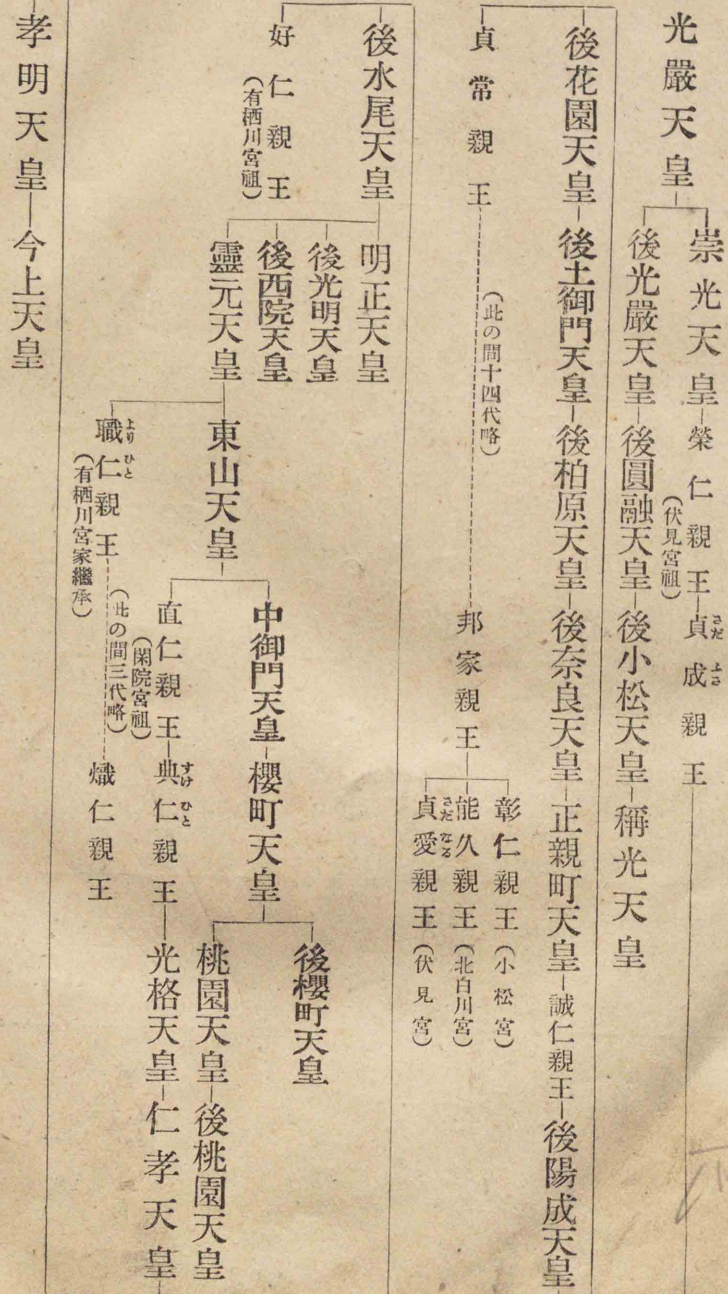 光嚴天皇
崇光天皇
榮仁親王
(伏見宮祖)
貞成親王
さだ よさ
後光嚴天皇
後圓融天皇
後小松天皇
稱光天皇
後花園天皇
後土御門天皇
後柏原天皇
後奈良天皇
正親町天皇
誠仁親王
後陽成天皇
貞常親王
(此の間十四代略)
邦家親王
彰仁親王(小松宮)
能久親王(北白川宮)
貞愛親王(伏見宮)
さだ なる
後水尾天皇
好仁親王
(有栖川宮祖)
明正天皇
後光明天皇
後西院天皇
靈元天皇
東山天皇
職仁親王
より ひと
(有栖川宮家繼承)
(此の間三代略)
熾仁親王
中御門天皇
櫻町天皇
後櫻町天皇
桃園天皇
後桃園天皇
直仁親王
(閑院宮祖)
典仁親王
すけ ひと
光格天皇
仁孝天皇
孝明天皇
今上天皇